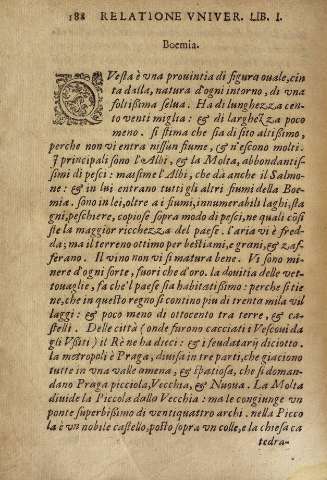 188 RELATIONE VNIVER. LIB. I.
Boemia.
QVesta è vna prouintia di figura ouale, cin
ta dalla, natura d'ogni intorno, di vna
foltissima selua. Ha di lunghezza cen-
to venti miglia: & di larghezza poco
meno. si stima che sia di sito altissimo,
perche non vi entra nissun fiume, & n'escono molti.
I principali sono l'Albi, & la Molta, abbondantis-
simi di pesci: massime l'Albi, che dà anche il Salmo-
ne: & in lui entrano tutti gli altri fiumi della Boe-
mia. sono in lei, oltre a i fiumi, innumerabili laghi, sta
gni, peschiere, copiose sopra modo di pesci, ne quali cōsi
ste la maggior ricchezza del paese. l'aria vi è fred-
da; ma il terreno ottimo per bestiami, e grani, & zaf-
ferano. Il vino non vi si matura bene. Vi sono mi-
nere d'ogni sorte, fuori che d'oro. la douitia delle vet-
touaglie, fa che'l paese sia habitatissimo: perche si tie
ne, che in questo regno si contino piu di trenta mila vil
laggi: & poco meno di ottocento tra terre, & ca-
stelli. Delle città (onde furono cacciati i Vescoui da
gli Vssiti) il Rè ne ha dieci: & i feudatarij diciotto.
la metropoli è Praga, diuisa in tre parti, che giaciono
tutte in vna valle amena, & spatiosa, che si doman-
dano Praga picciola, Vecchia, & Nuoua. La Molta
diuide la Piccola dalla Vecchia: ma le congiunge vn
ponte superbissimo di ventiquattro archi. nella Picco
la è vn nobile castello, posto sopra vn colle, e la chiesa ca
tedra-